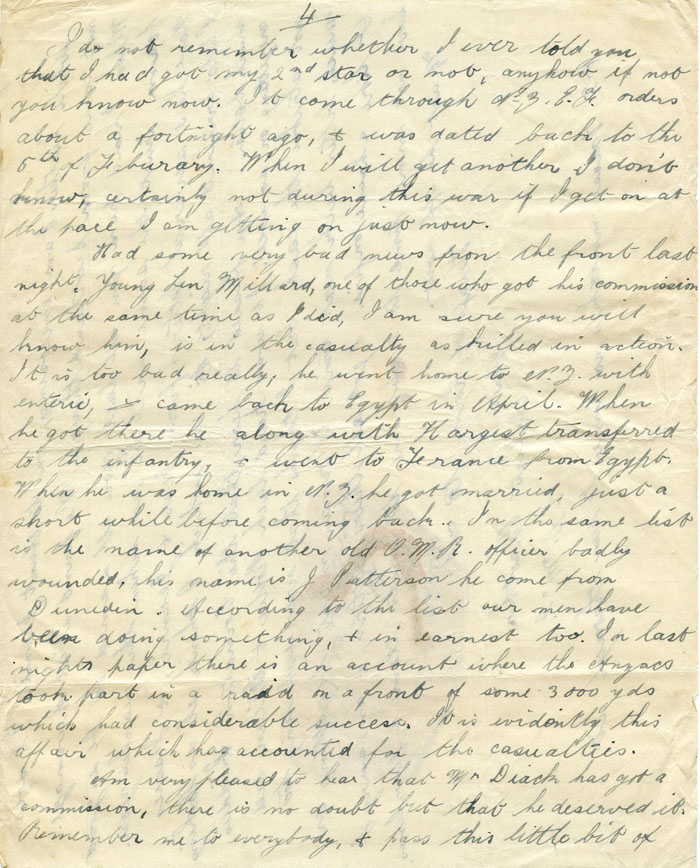 4
I do not remember whether I ever told you
that I had got my 2nd star or not, anyhow if not
you know now. It come through N.Z.E.F. orders
about a fortnight ago, & was dated back to the
5th of Feburary. When I will get another I don't
know, certainly not during this war if I get on at
the pace I am getting on just now.
Had some very bad news fron the front last
night. Young Len Millard, one of those who got his commission
at the same time as I did, I am sure you will
know him, is in the casualty as killed in action.
It is too bad really, he went home to N.Z. with
enteric, & came back to Egypt in April. When
he got there he along with Hargest transferred
to the infantry, & went to Ferance from Egypt.
When he was home in N.Z. he got married, just a
short while before coming back. In the same list
is the name of another old O.M.R. officer badly
wounded, his name is J Patterson he come from
Dunedin. According to the list our men have
been doing something, & in earnest too. In last
nights paper there is an account where the Anzacs
took part in a raid on a front of some 3000 yds
which had considerable success. It is evidently this
affair which has accounted for the casualties.
Am very pleased to hear that Mr Diack has got a
commission, there is no doubt but that he deserved it.
Remember me to everybody, & pass this little bit of